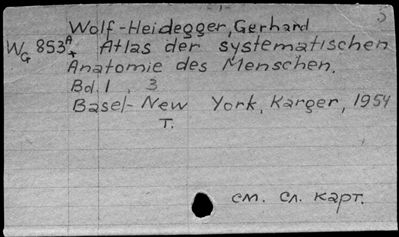 5
Wolf-Heidegger, Gerhard
WG 853A+ Atlas der systematischen
Anatomie des Menschen.
Bd. 1, 3
Basel-New York, Karger, 1954
T.
см. сл. карт.